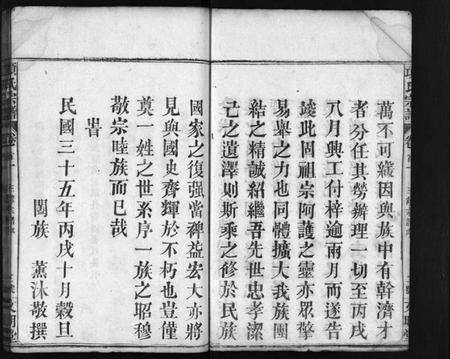 萬不可緩因與族中有幹濟才
者分任其勞辦理一切至丙戌
八月興工付梓逾兩月而遂告
竣此固祖宗阿護之靈亦眾擎
易舉之力也同體擴大我族團
結之精誠紹繼吾先世忠孝潔
己之遺澤則斯乘之修於民族
國家之復强當裨益宏大亦將
見與國史齊輝於不朽也豈僅
奠一姓之世系序一族之昭穆
敬宗睦族而已哉
旹
民國三十五年丙戌十月穀旦
闔族　薰沐敬撰